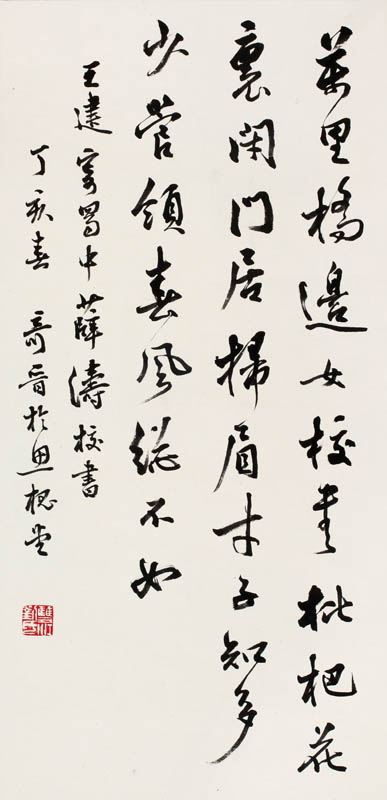 萬里橋邊女校書枇杷花
裏閉門居掃眉才子知多
少管領春風總不如
王建寄蜀中薛濤校書
丁亥春 晋於思堂